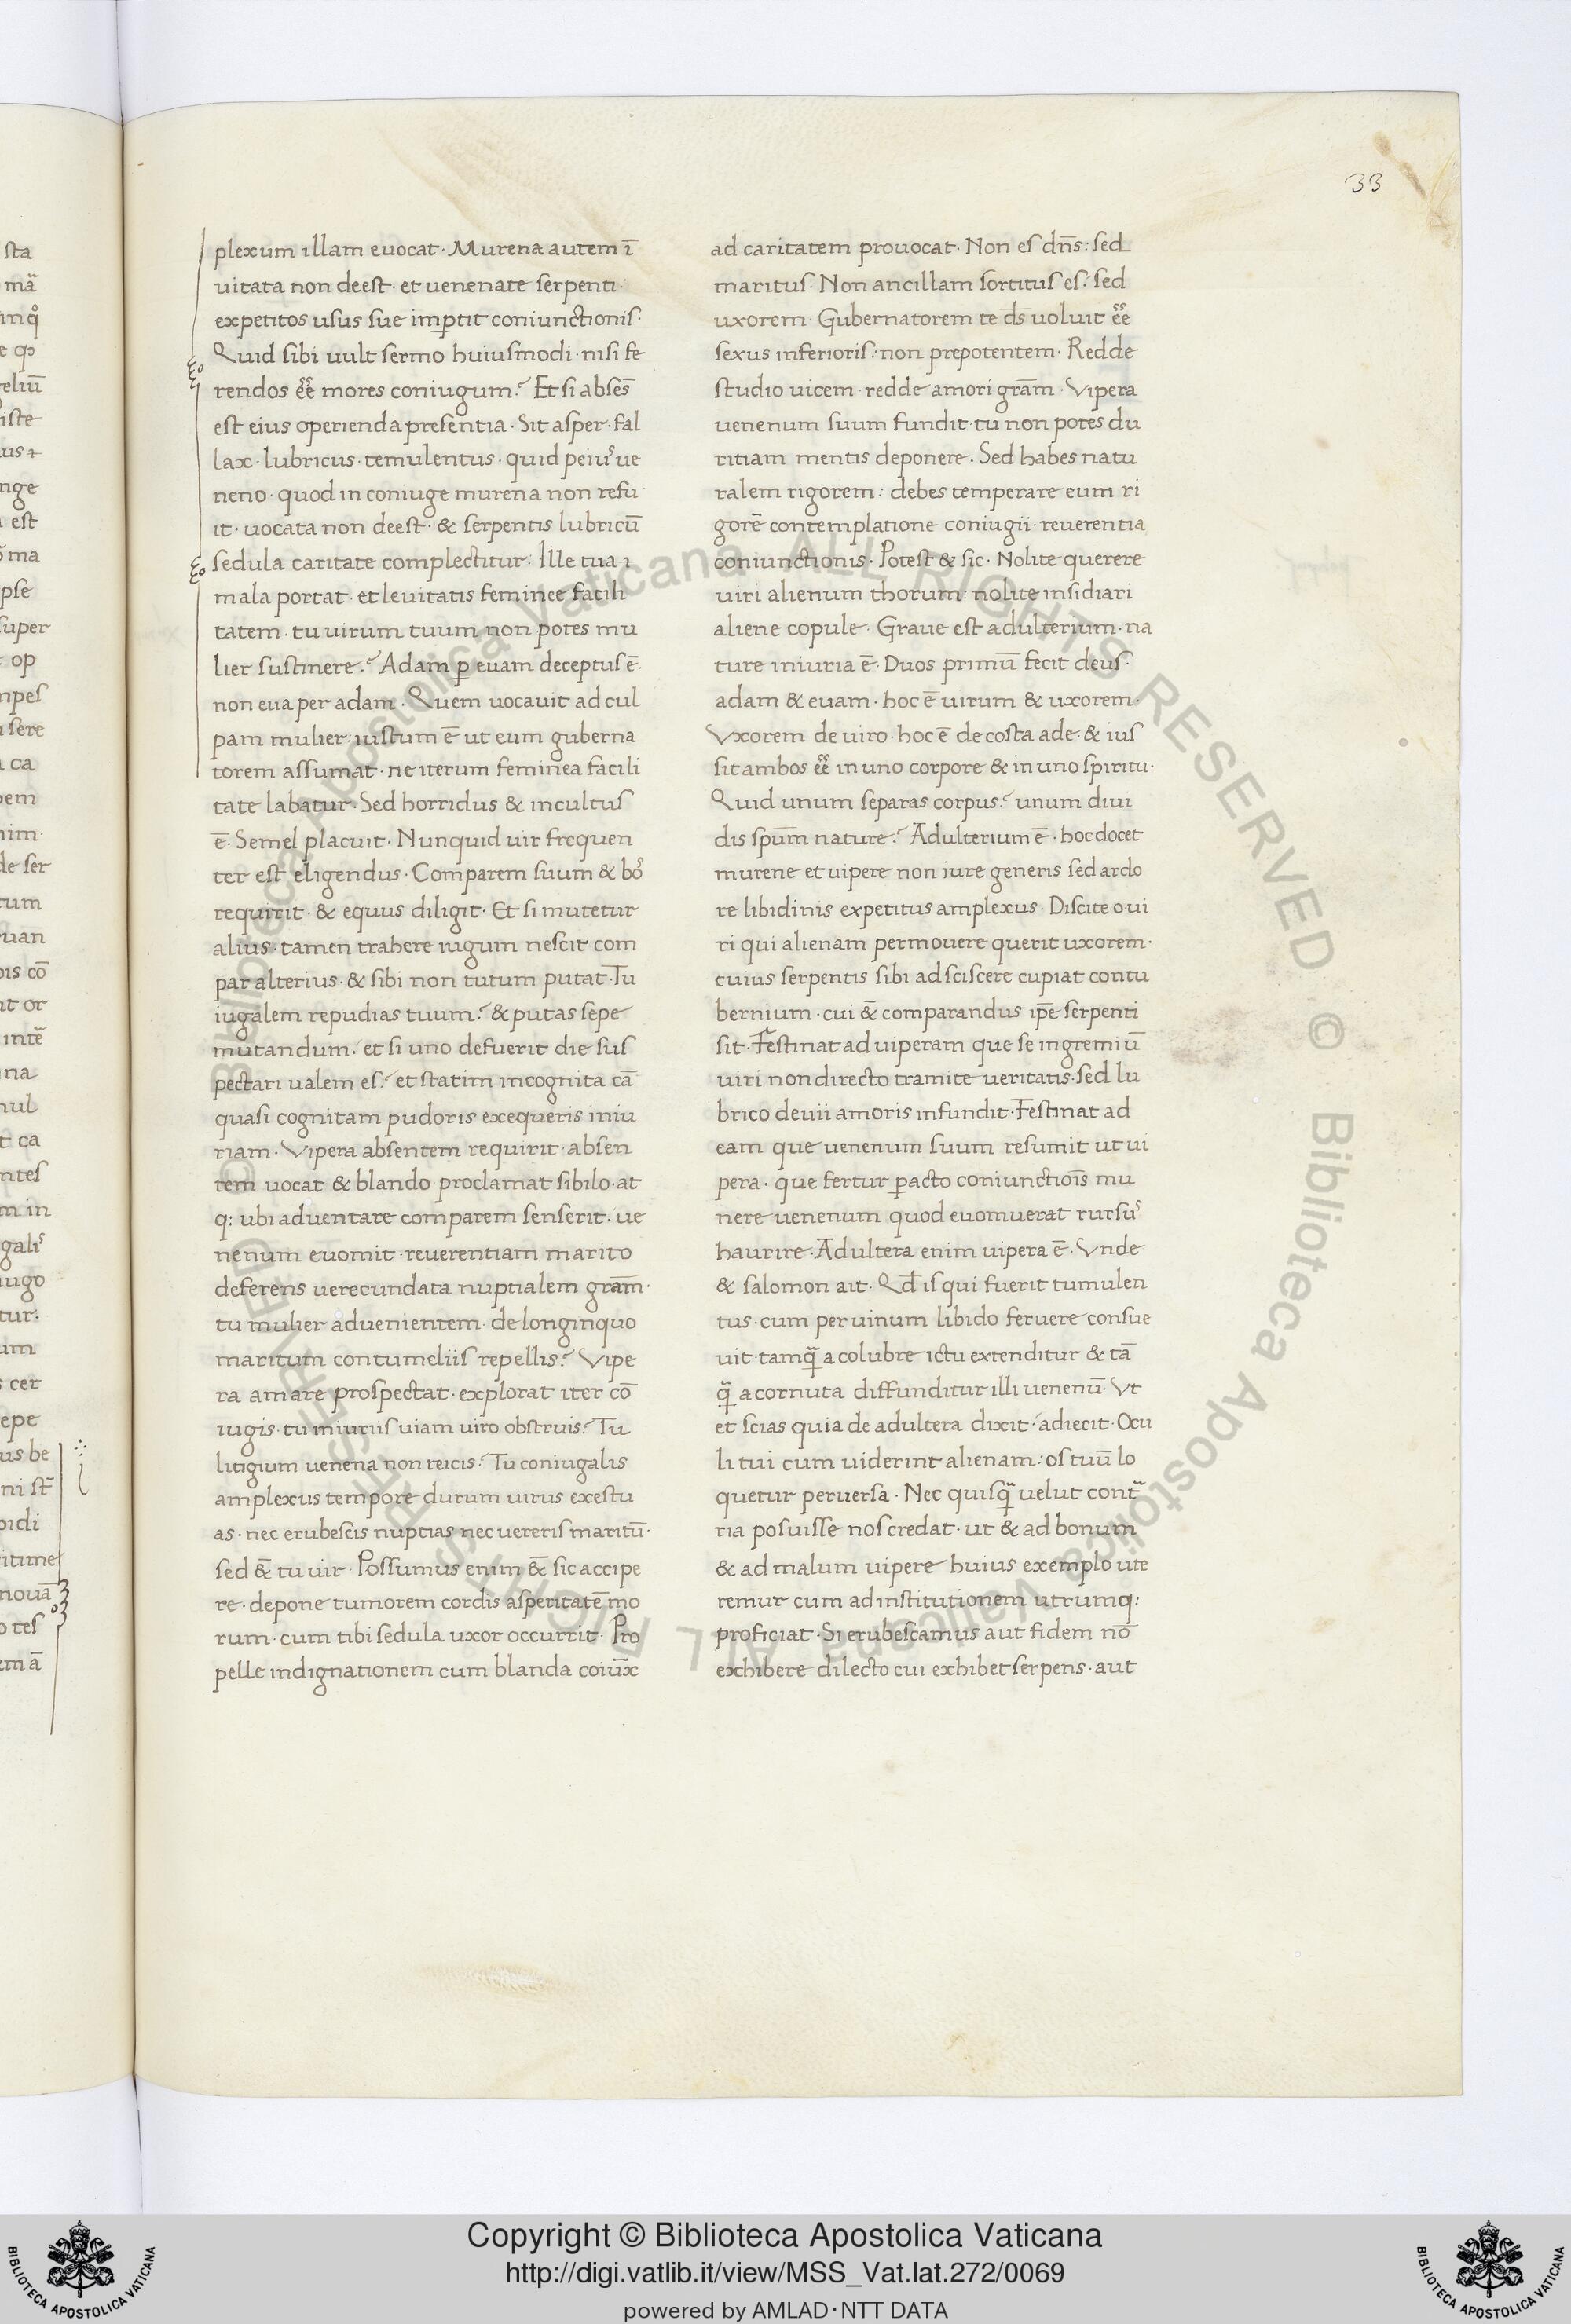 33
plexum illam euocat · Murena autem ī
uitata non deest · et uenenate serpenti ·
expetitos usus sue imꝑtit coniunctionis ·
Quid sibi uult sermo huiusmodi · nisi fe
rendos ēē mores coniugum? Et si absēs
est eius operienda presentia · Sit asper · fal
lax · lubricus · temulentus · quid peius ue
neno · quod in coniuge murena non refu
it · uocata non deest · & serpentis lubricū
sedula caritate complectitur · Ille tua
mala portat · et leuitatis feminee facili
tatem · tu uirum tuum non potes mu
lier sustinere? Adam ꝑ euam deceptus ē ·
non eua per adam · Quem uocauit ad cul
pam mulier · iustum ē ut eum guberna
torem assumat · ne iterum feminea facili
tate labatur · Sed horridus & incultus
ē · Semel placuit · Nunquid uir frequen
ter est eligendus · Comparem suum & bos
requirit · & equus diligit · Et si mutetur
alius · tamen trahere iugum nescit com
par alterius · & sibi non tutum putat · Tu
iugalem repudias tuum? & putas sepe
mutandum · et si uno defuerit die sus
pectari ualem es? et statim incognita cā
quasi cognitam pudoris exequeris iniu
riam · Vipera absentem requirit · absen
tem uocat & blando proclamat sibilo · at
q: ubi aduentare comparem senserit · ue
nenum euomit · reuerentiam marito
deferens uerecundata nuptialem grām ·
tu mulier aduenientem de longinquo
maritum contumeliis repellis? Vipe
ra amare prospectat · explorat iter cō
iugis · tu iniuriis uiam uiro obstruis? Tu
litigium uenena non reicis? Tu coniugalis
amplexus tempore durum uirus exestu
as · nec erubescis nuptias nec uereris maritū ·
sed &̄ tu uir · Possumus enim &̄ sic accipe
re · depone tumorem cordis asperitatē mo
rum · cum tibi sedula uxor occurrit · Pro
pelle indignationem cum blanda coiūx
ad caritatem prouocat · Non es dn̄s: sed
maritus · Non ancillam sortitus es: sed
uxorem · Gubernatorem te ds̄ uoluit ēē
sexus inferioris: non prepotentem · Redde
studio uicem · redde amori grām · Vipera
uenenum suum fundit · tu non potes du
ritiam mentis deponere · Sed habes natu
ralem rigorem: debes temperare eum ri
gorē contemplatione coniugii · reuerentia
coniunctionis · Potest & sic · Nolite querere
uiri alienum thorum: nolite insidiari
aliene copule · Graue est adulterium · na
ture iniuria ē · Duos primū fecit deus ·
adam & euam · hoc ē uirum & uxorem ·
Vxorem de uiro · hoc ē de costa ade · & ius
sit ambos ēē in uno corpore & in uno spiritu ·
Quid unum separas corpus? unum diui
dis spūm nature? Adulterium ē · hoc docet
murene et uipere non iure generis sed ardo
re libidinis expetitus amplexus · Discite o ui
ri qui alienam permouere querit uxorem ·
cuius serpentis sibi adsciscere cupiat contu
bernium · cui &̄ comparandus ip̄e serpenti
sit · Festinat ad uiperam que se in gremiū
uiri non directo tramite ueritatis · sed lu
brico deuii amoris infundit · Festinat ad
eam que uenenum suum resumit ut ui
pera · que fertur ꝑacto coniunctiōis mu
nere uenenum quod euomuerat rursus
haurire · Adultera enim uipera ē · Vnde
& salomon ait · Qd̄ is qui fuerit tumulen
tus · cum per uinum libido feruere consue
uit · tamq̄ a colubre ictu extenditur & tā
q̄ a cornuta diffunditur illi uenenū · Vt
et scias quia de adultera dixit · adiecit · Ocu
li tui cum uiderint alienam: os tuū lo
quetur peruersa · Nec quisq̄ uelut contra
ria posuisse nos credat · ut & ad bonum
& ad malum uipere huius exemplo ute
remur cum ad institutionem utrumq:
proficiat · Si erubescamus aut fidem nō
exhibere dilecto cui exhibet serpens · aut
Copyright © Biblioteca Apostolica Vaticana
http://digi.vatlib.it/view/MSS_Vat.lat.272/0069
powered by AMLAD·NTT DATA